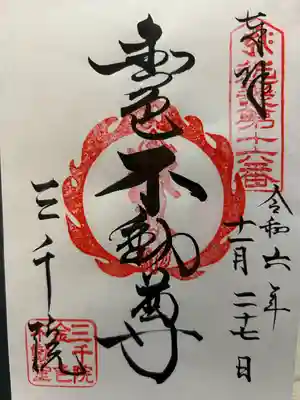 奉拝
第十六番
令和六年
十一月二十七日
金色不動尊
三千院
三千院